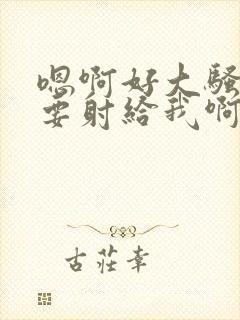 嗯啊好大騷
要射給我啊
古莊幸